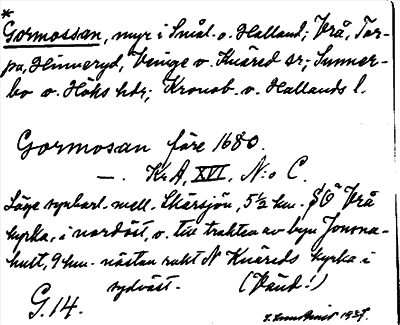 *
Gormossan, myr i Smål. o. Halland; Vrå, Tor-
pa, Hinneryd, Veinge o. Knäred sr; Sunner-
bo o. Höks hdr; Kronob. o. Hallands l.
Gormosan före 1680.
—. KrA, XVI, N:o C.
Läge synbarl. mell. Skärsjön, 5½ km. SO Vrå
kyrka, i nordöst, o. till trakten av byn Jonna-
hult, 9 km. nästan rakt N Knäreds kyrka i
sydväst. (Vänd!)
G.14.
1937.